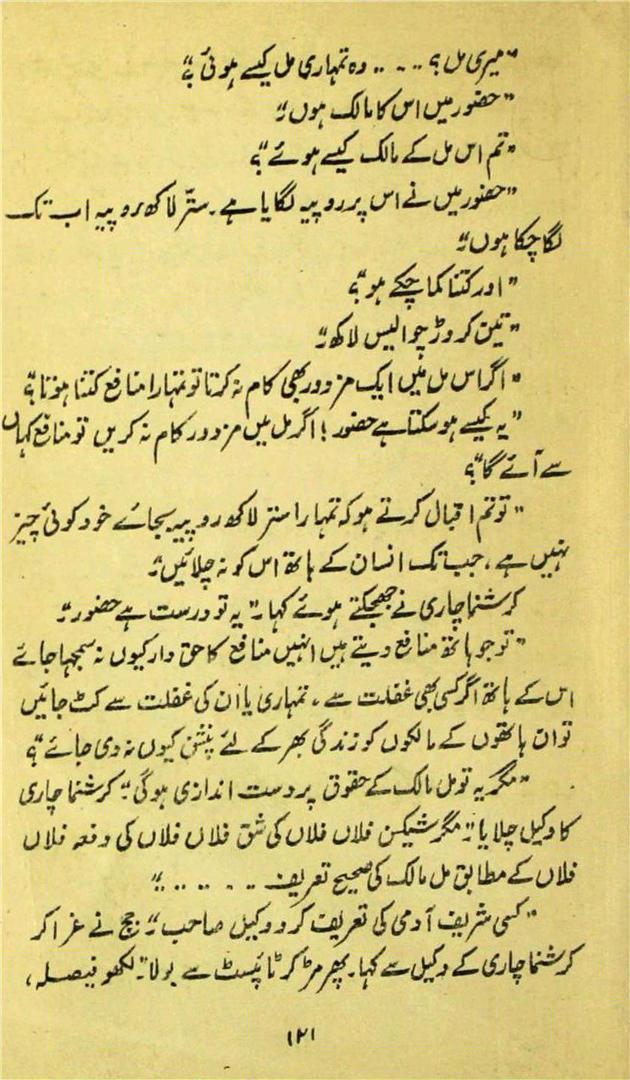 "میری مل؟ ۔۔۔۔ وہ تمہاری مل کیسے ہوئی؟"
"حضور میں اس کا مالک ہوں۔"
"تم اس مل کے مالک کیسے ہوئے؟"
"حضور میں نے اس پر روپیہ لگایا ہے۔ ستّر لاکھ روپیہ اب تک
لگا چکا ہوں۔"
"اور کتنا کما چکے ہو؟"
"تین کروڑ چوالیس لاکھ۔"
"اگر اس مل میں ایک مزدور بھی کام نہ کرتا تو تمہارا منافع کتنا ہوتا؟"
"یہ کیسے ہو سکتا ہے حضور! اگر مل میں مزدور کام نہ کریں تو منافع کہاں
سے آئے گا؟"
"تو تم اقبال کرتے ہو کہ تمہارا ستر لاکھ روپیہ بجائے خود کوئی چیز
نہیں ہے، جب تک انسان کے ہاتھ اس کو نہ چلائیں۔"
کرشنما چاری نے جھجکتے ہوئے کہا۔ "یہ تو درست ہے حضور۔"
"تو جو ہاتھ منافع دیتے ہیں انہیں منافع کا حق دار کیوں نہ سمجھا جائے
اس کے ہاتھ اگر کسی بھی غفلت سے، تمہاری یا ان کی غفلت سے کٹ جائیں
تو ان ہاتھوں کے مالکوں کو زندگی بھر کے لئے پنشن کیوں نہ دی جائے؟"
"مگر یہ تو مل مالک کے حقوق پر دست اندازی ہوگی۔" کرشنما چاری
کا وکیل چلایا۔ "مگر سیکشن فلاں فلاں کی شق فلاں فلاں کی دفعہ فلاں
فلاں کے مطابق مل مالک کی صحیح تعریف ۔۔۔۔۔۔"
"کسی شریف آدمی کی تعریف کرو وکیل صاحب۔" جج نے غرا کر
کرشنما چاری کے وکیل سے کہا۔ پھر مڑ کر ٹائپسٹ سے بولا۔ "لکھو فیصلہ،
۱۲۱